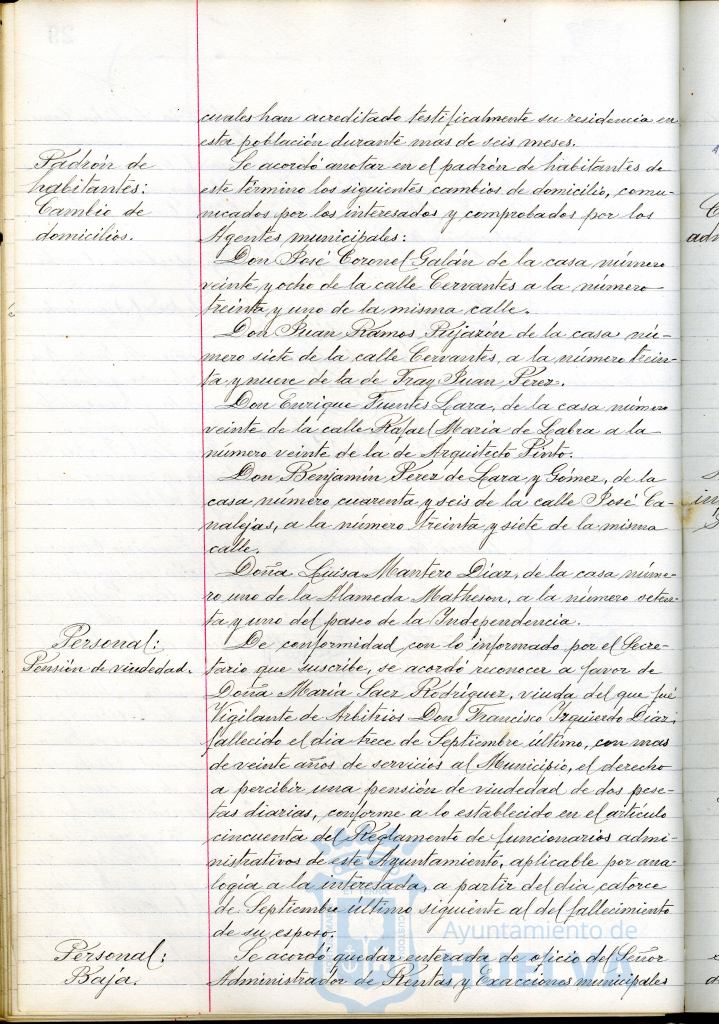 cuales han acreditado testificalmente su residencia en
esta población durante mas de seis meses.
Padrón de
habitantes:
Cambio de
domicilios.
Se acordó anotar en el padrón de habitantes de
este término los siguientes cambios de domicilio, comu-
nicados por los interesados y comprobados por los
Agentes municipales:
Don José Coronel Galán de la casa número
veinte y ocho de la calle Cervantes a la número
treinta y uno de la misma calle.
Don Juan Ramos Pejazón de la casa nú-
mero siete de la calle Cervantes, a la número trein-
ta y nueve de la de Fray Juan Pérez.
Don Enrique Fuentes Lara, de la casa número
veinte de la calle Rafael María de Labra a la
número veinte de la de Arquitecto Pinto.
Don Benjamín Pérez de Lara y Gómez, de la
casa número cuarenta y seis de la calle José Ca-
nalejas, a la número treinta y siete de la misma
calle.
Doña Luisa Mantero Díaz, de la casa núme-
ro uno de la Alameda Matheson, a la número seten-
ta y uno del paseo de la Independencia.
Personal:
Pensión de viudedad.
De conformidad con lo informado por el Secre-
tario que suscribe, se acordó reconocer a favor de
Doña María Saez Rodríguez, viuda del que fué
Vigilante de Arbitrios Don Francisco Izquierdo Díaz,
fallecido el dia trece de Septiembre último, con mas
de veinte años de servicios al Municipio, el derecho
a percibir una pensión de viudedad de dos pese-
tas diarias, conforme a lo establecido en el artículo
cincuenta del Reglamento de funcionarios admi-
nistrativos de este Ayuntamiento, aplicable por ana-
logía a la interesada, a partir del dia catorce
de Septiembre último siguiente al del fallecimiento
de su esposo.
Personal:
Baja.
Se acordó quedar enterada de oficio del Señor
Administrador de Rentas y Exacciones municipales
Ayuntamiento de
HUELVA